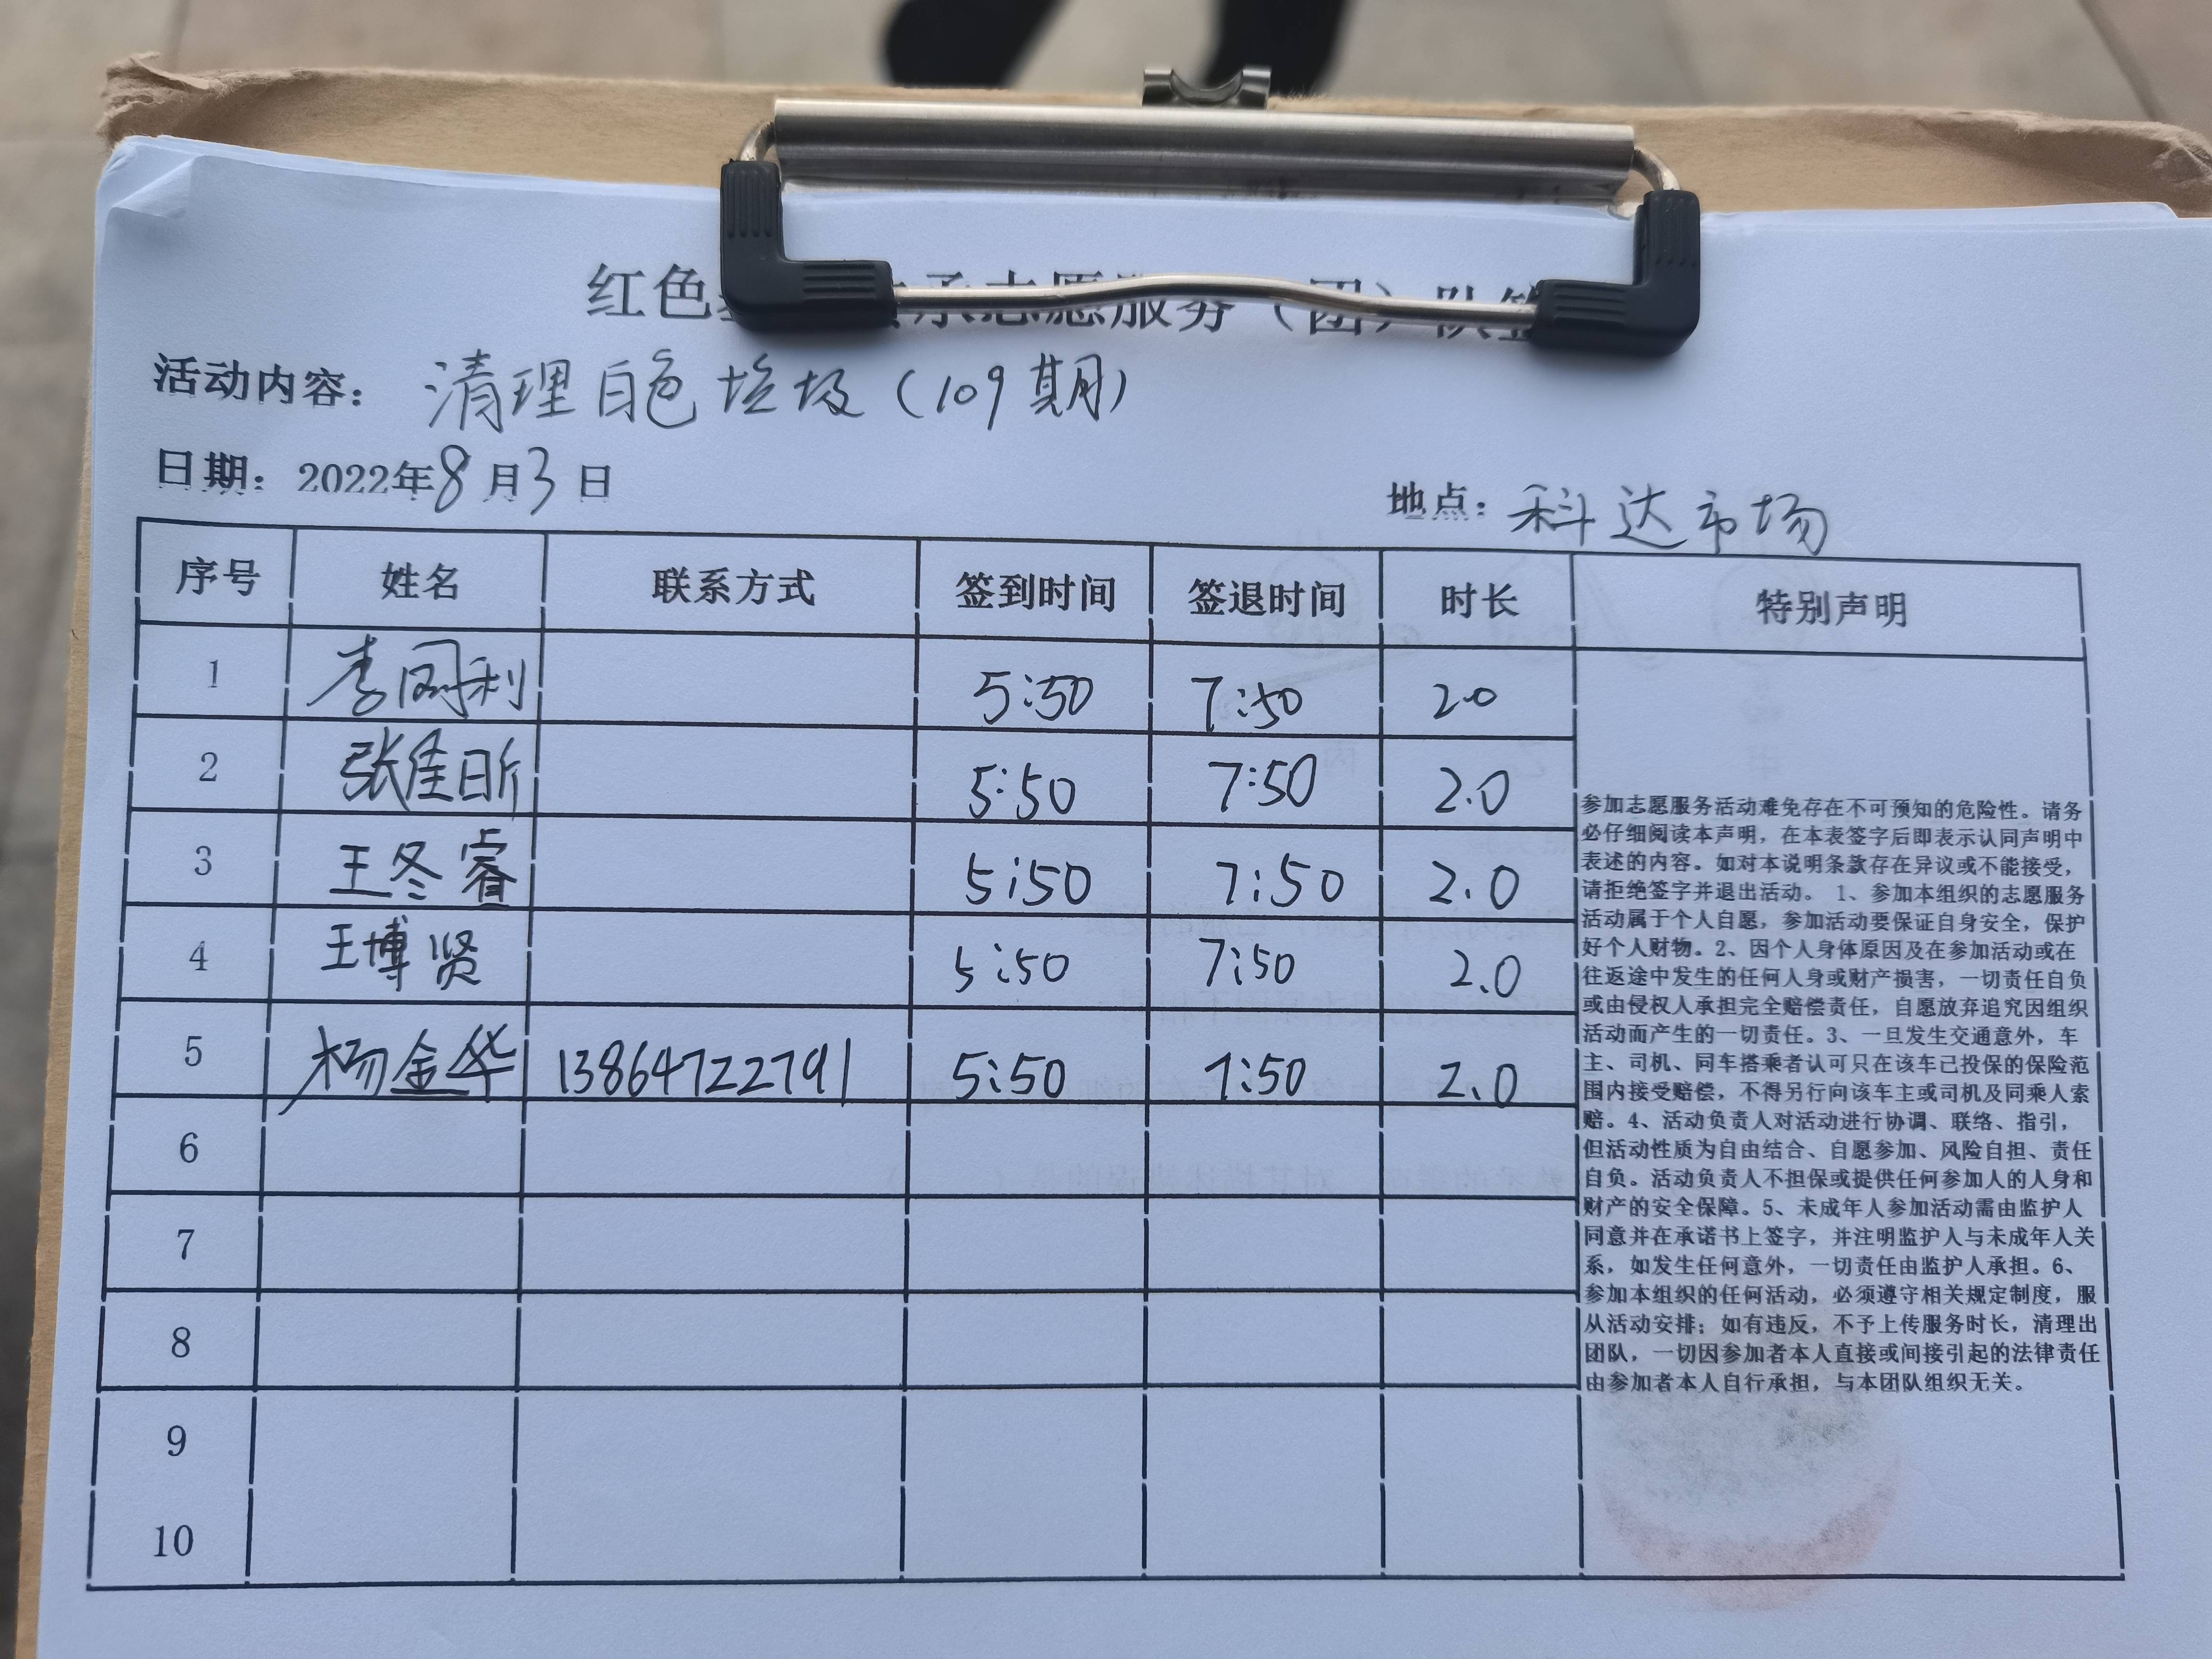 红色 承志愿服务（团）队签
活动内容：清理白色垃圾（109期）
日期：2022年8月3日
地点：科达市场
序号 姓名 联系方式 签到时间 签退时间 时长 特别声明
1 李同利 5:50 7:50 2.0
2 张佳昕 5:50 7:50 2.0
3 王冬睿 5:50 7:50 2.0
4 王博贤 5:50 7:50 2.0
5 杨金华 13864722791 5:50 7:50 2.0
6
7
8
9
10
参加志愿服务活动难免存在不可预知的危险性。请务
必仔细阅读本声明，在本表签字后即表示认同声明中
表述的内容。如对本说明条款存在异议或不能接受，
请拒绝签字并退出活动。 1、参加本组织的志愿服务
活动属于个人自愿，参加活动要保证自身安全，保护
好个人财物。2、因个人身体原因及在参加活动或在
往返途中发生的任何人身或财产损害，一切责任自负
或由侵权人承担完全赔偿责任，自愿放弃追究因组织
活动而产生的一切责任。3、一旦发生交通意外，车
主、司机、同车搭乘者认可只在该车已投保的保险范
围内接受赔偿，不得另行向该车主或司机及同乘人索
赔。4、活动负责人对活动进行协调、联络、指引，
但活动性质为自由结合、自愿参加、风险自担、责任
自负。活动负责人不担保或提供任何参加人的人身和
财产的安全保障。5、未成年人参加活动需由监护人
同意并在承诺书上签字，并注明监护人与未成年人关
系，如发生任何意外，一切责任由监护人承担。6、
参加本组织的任何活动，必须遵守相关规定制度，服
从活动安排；如有违反，不予上传服务时长，清理出
团队，一切因参加者本人直接或间接引起的法律责任
由参加者本人自行承担，与本团队组织无关。